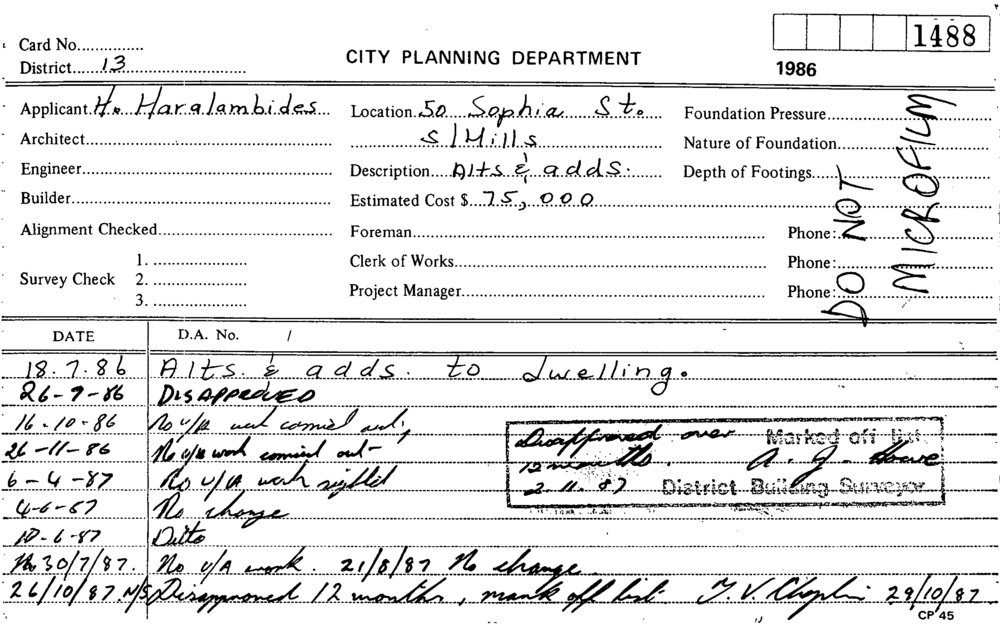 1488
1986
Card No...............
District......13..............................
CITY PLANNING DEPARTMENT
Applicant H. Haralambides
Location 50 Sophia St.
Foundation Pressure
Architect
S/Hills
Nature of Foundation
Engineer
Description Alts & adds.
Depth of Footings
Builder
Estimated Cost $ 75,000
Alignment Checked
Foreman
Phone:
Survey Check 1.
2.
3.
Clerk of Works
Phone:
Project Manager
Phone:
DO NOT
MICROFILM
DATE D.A. No. /
18.7.86 Alts. & adds. to dwelling.
26-9-86 DISAPPROVED
16-10-86 No u/a work carried out,
26-11-86 No u/a work carried out-
6-4-87 No u/a work sighted
4-6-87 No change
10-6-87 Ditto
30/7/87. No u/A work. 21/8/87 No change
26/10/87. N/S Disapproved 12 months, mark off list. 29/10/87
Disapproved over
12 months.
2.11.87
Marked off list
A. J. Howe
District Building Surveyor
CP 45